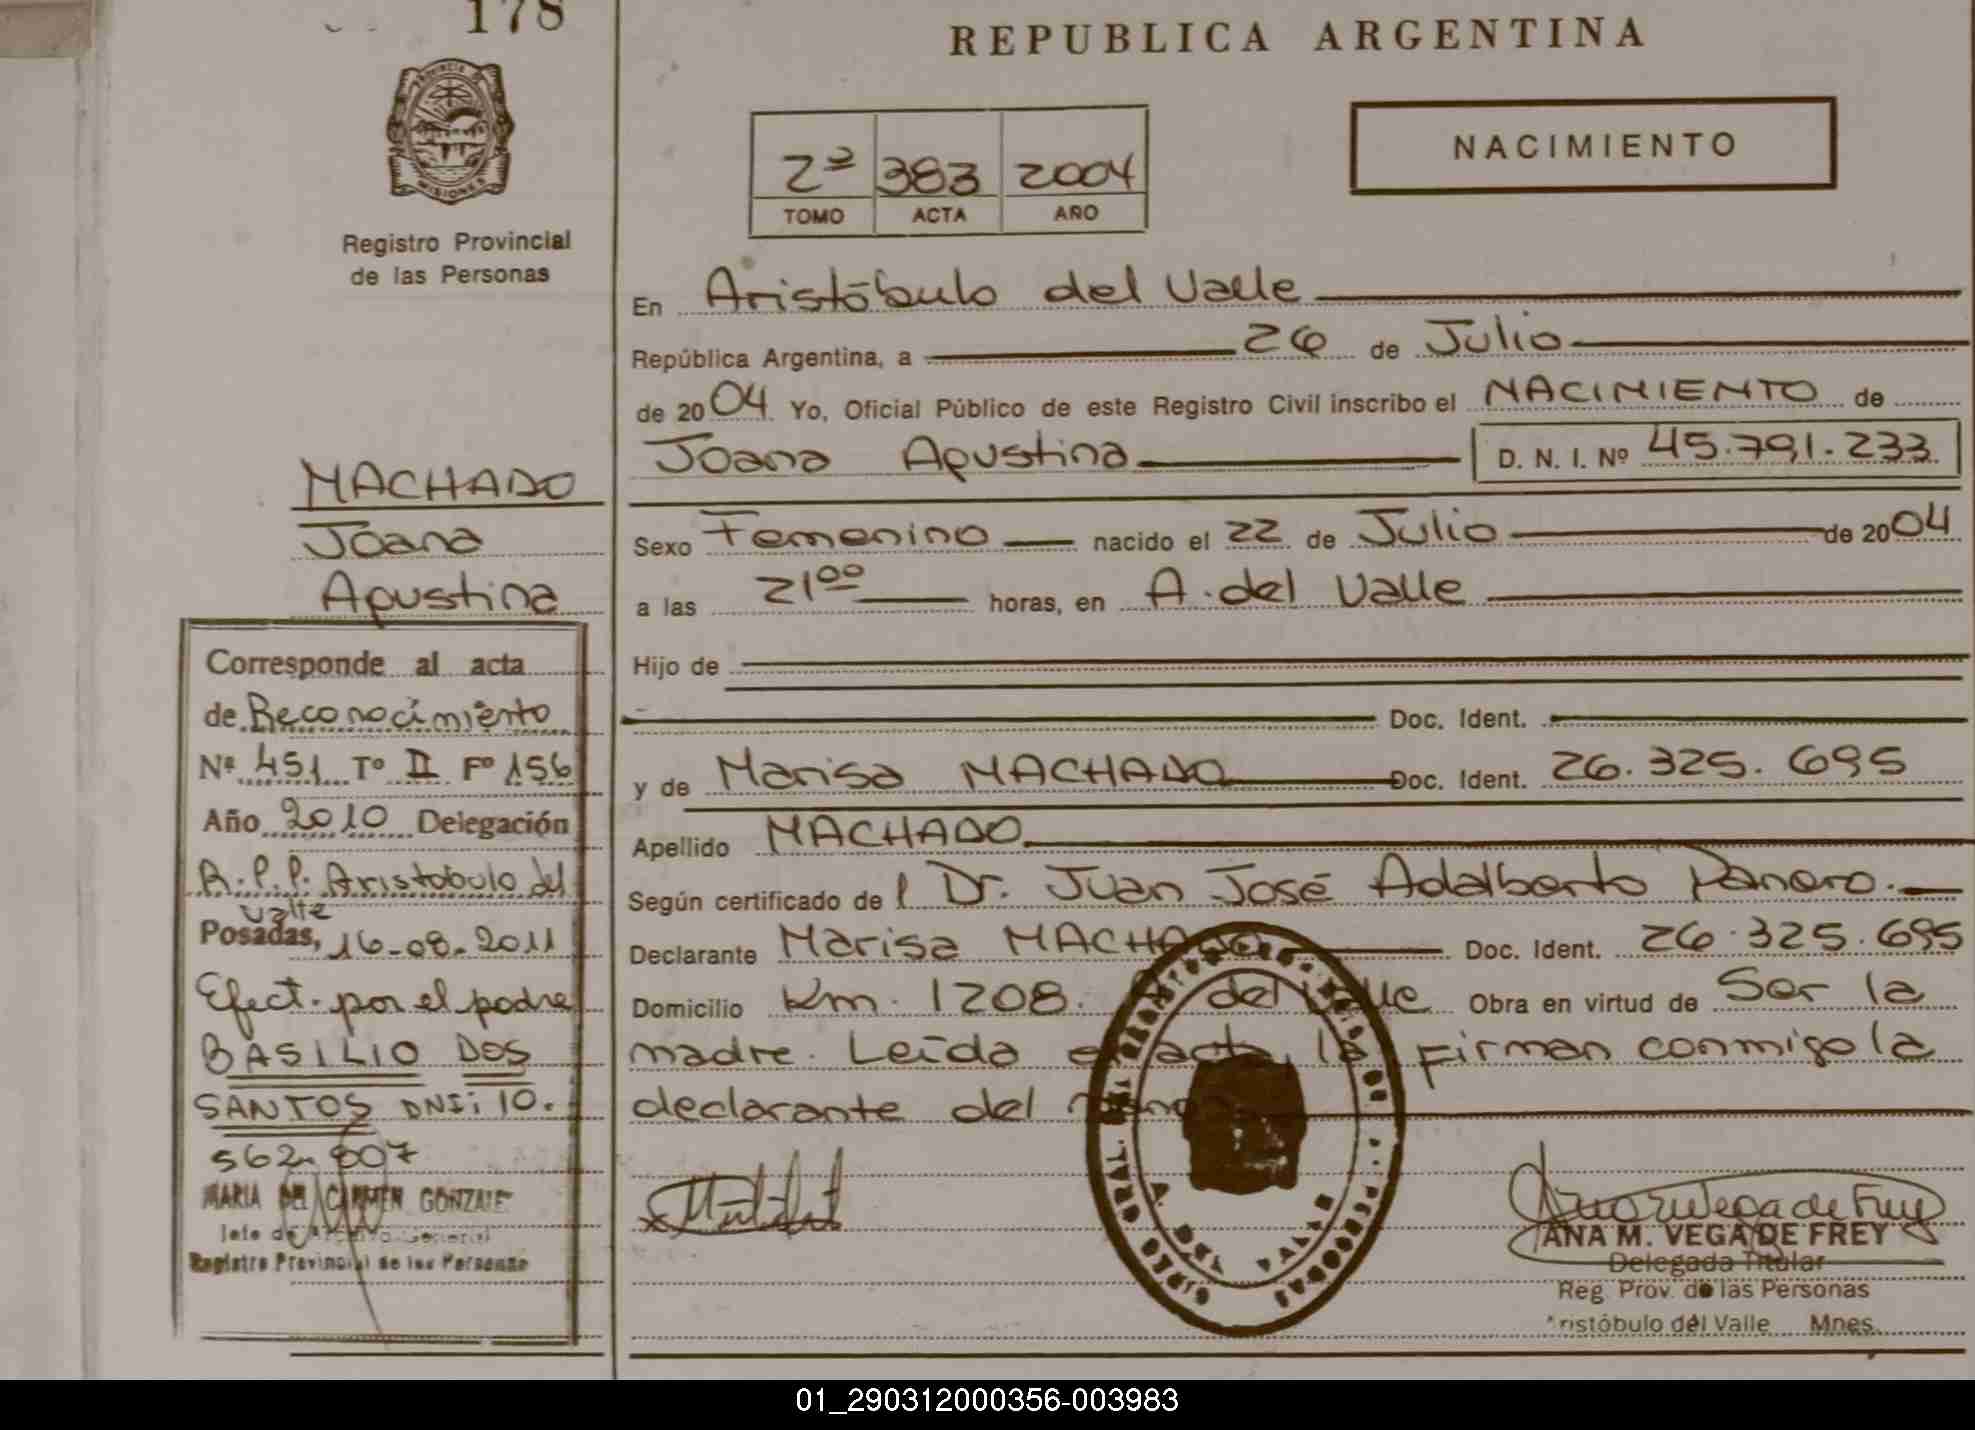 178
PROVINCIA DE
MISIONES
Registro Provincial
de las Personas
MACHADO
Joana
Agustina
Corresponde al acta
de Reconocimiento
Nº 451 Tº II Fº 156
Año 2010 Delegación
R.P.P. Aristobulo del
Valle
Posadas, 16-08-2011
Efect. por el padre
BASILIO DOS
SANTOS DNI: 10.
562.807
MARIA DEL CARMEN GONZALE
Jefe de Archivo General
Registro Provincial de las Personas
REPUBLICA ARGENTINA
NACIMIENTO
2º 383 2004
TOMO ACTA AÑO
En Aristóbulo del Valle
República Argentina, a 26 de Julio
de 2004 Yo, Oficial Público de este Registro Civil inscribo el NACIMIENTO de
Joana Agustina D. N. I. Nº 45.791.233
Sexo Femenino nacido el 22 de Julio de 2004
a las 21 00 horas, en A. del Valle
Hijo de
Doc. Ident.
y de Marisa MACHADO Doc. Ident. 26.325.695
Apellido MACHADO
Según certificado del Dr. Juan José Adalberto Panero.
Declarante Marisa MACHADO Doc. Ident. 26.325.695
Domicilio Km. 1208. A. del Valle Obra en virtud de Ser la
madre. Leída el acta, la firman conmigo la
declarante del
ANA M. VEGA DE FREY
Delegada Titular
Reg. Prov. de las Personas
Aristóbulo del Valle Mnes.
A. DEL VALLE
01_290312000356-003983